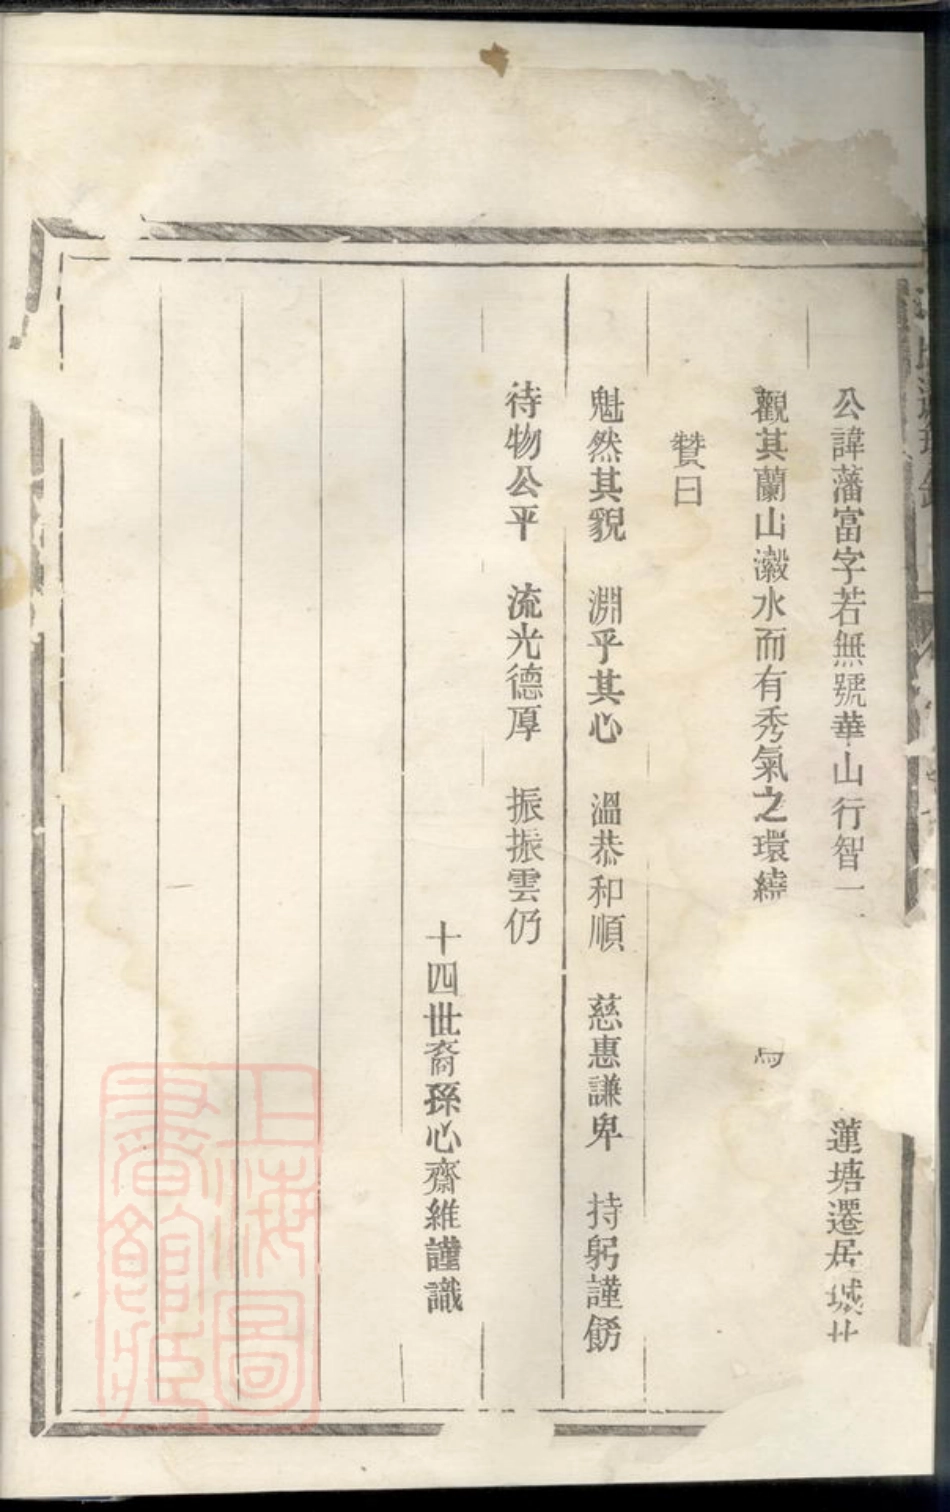 公諱藩富字若無號華山行智一蓮塘遷居城北
觀其蘭山瀫水而有秀氣之環繞
贊曰
魁然其貌　淵乎其心　溫恭和順　慈惠謙卑　持躬謹飭
待物公平　流光德厚　振振雲仍
十四世裔孫心齋維謹識
上海圖書館藏